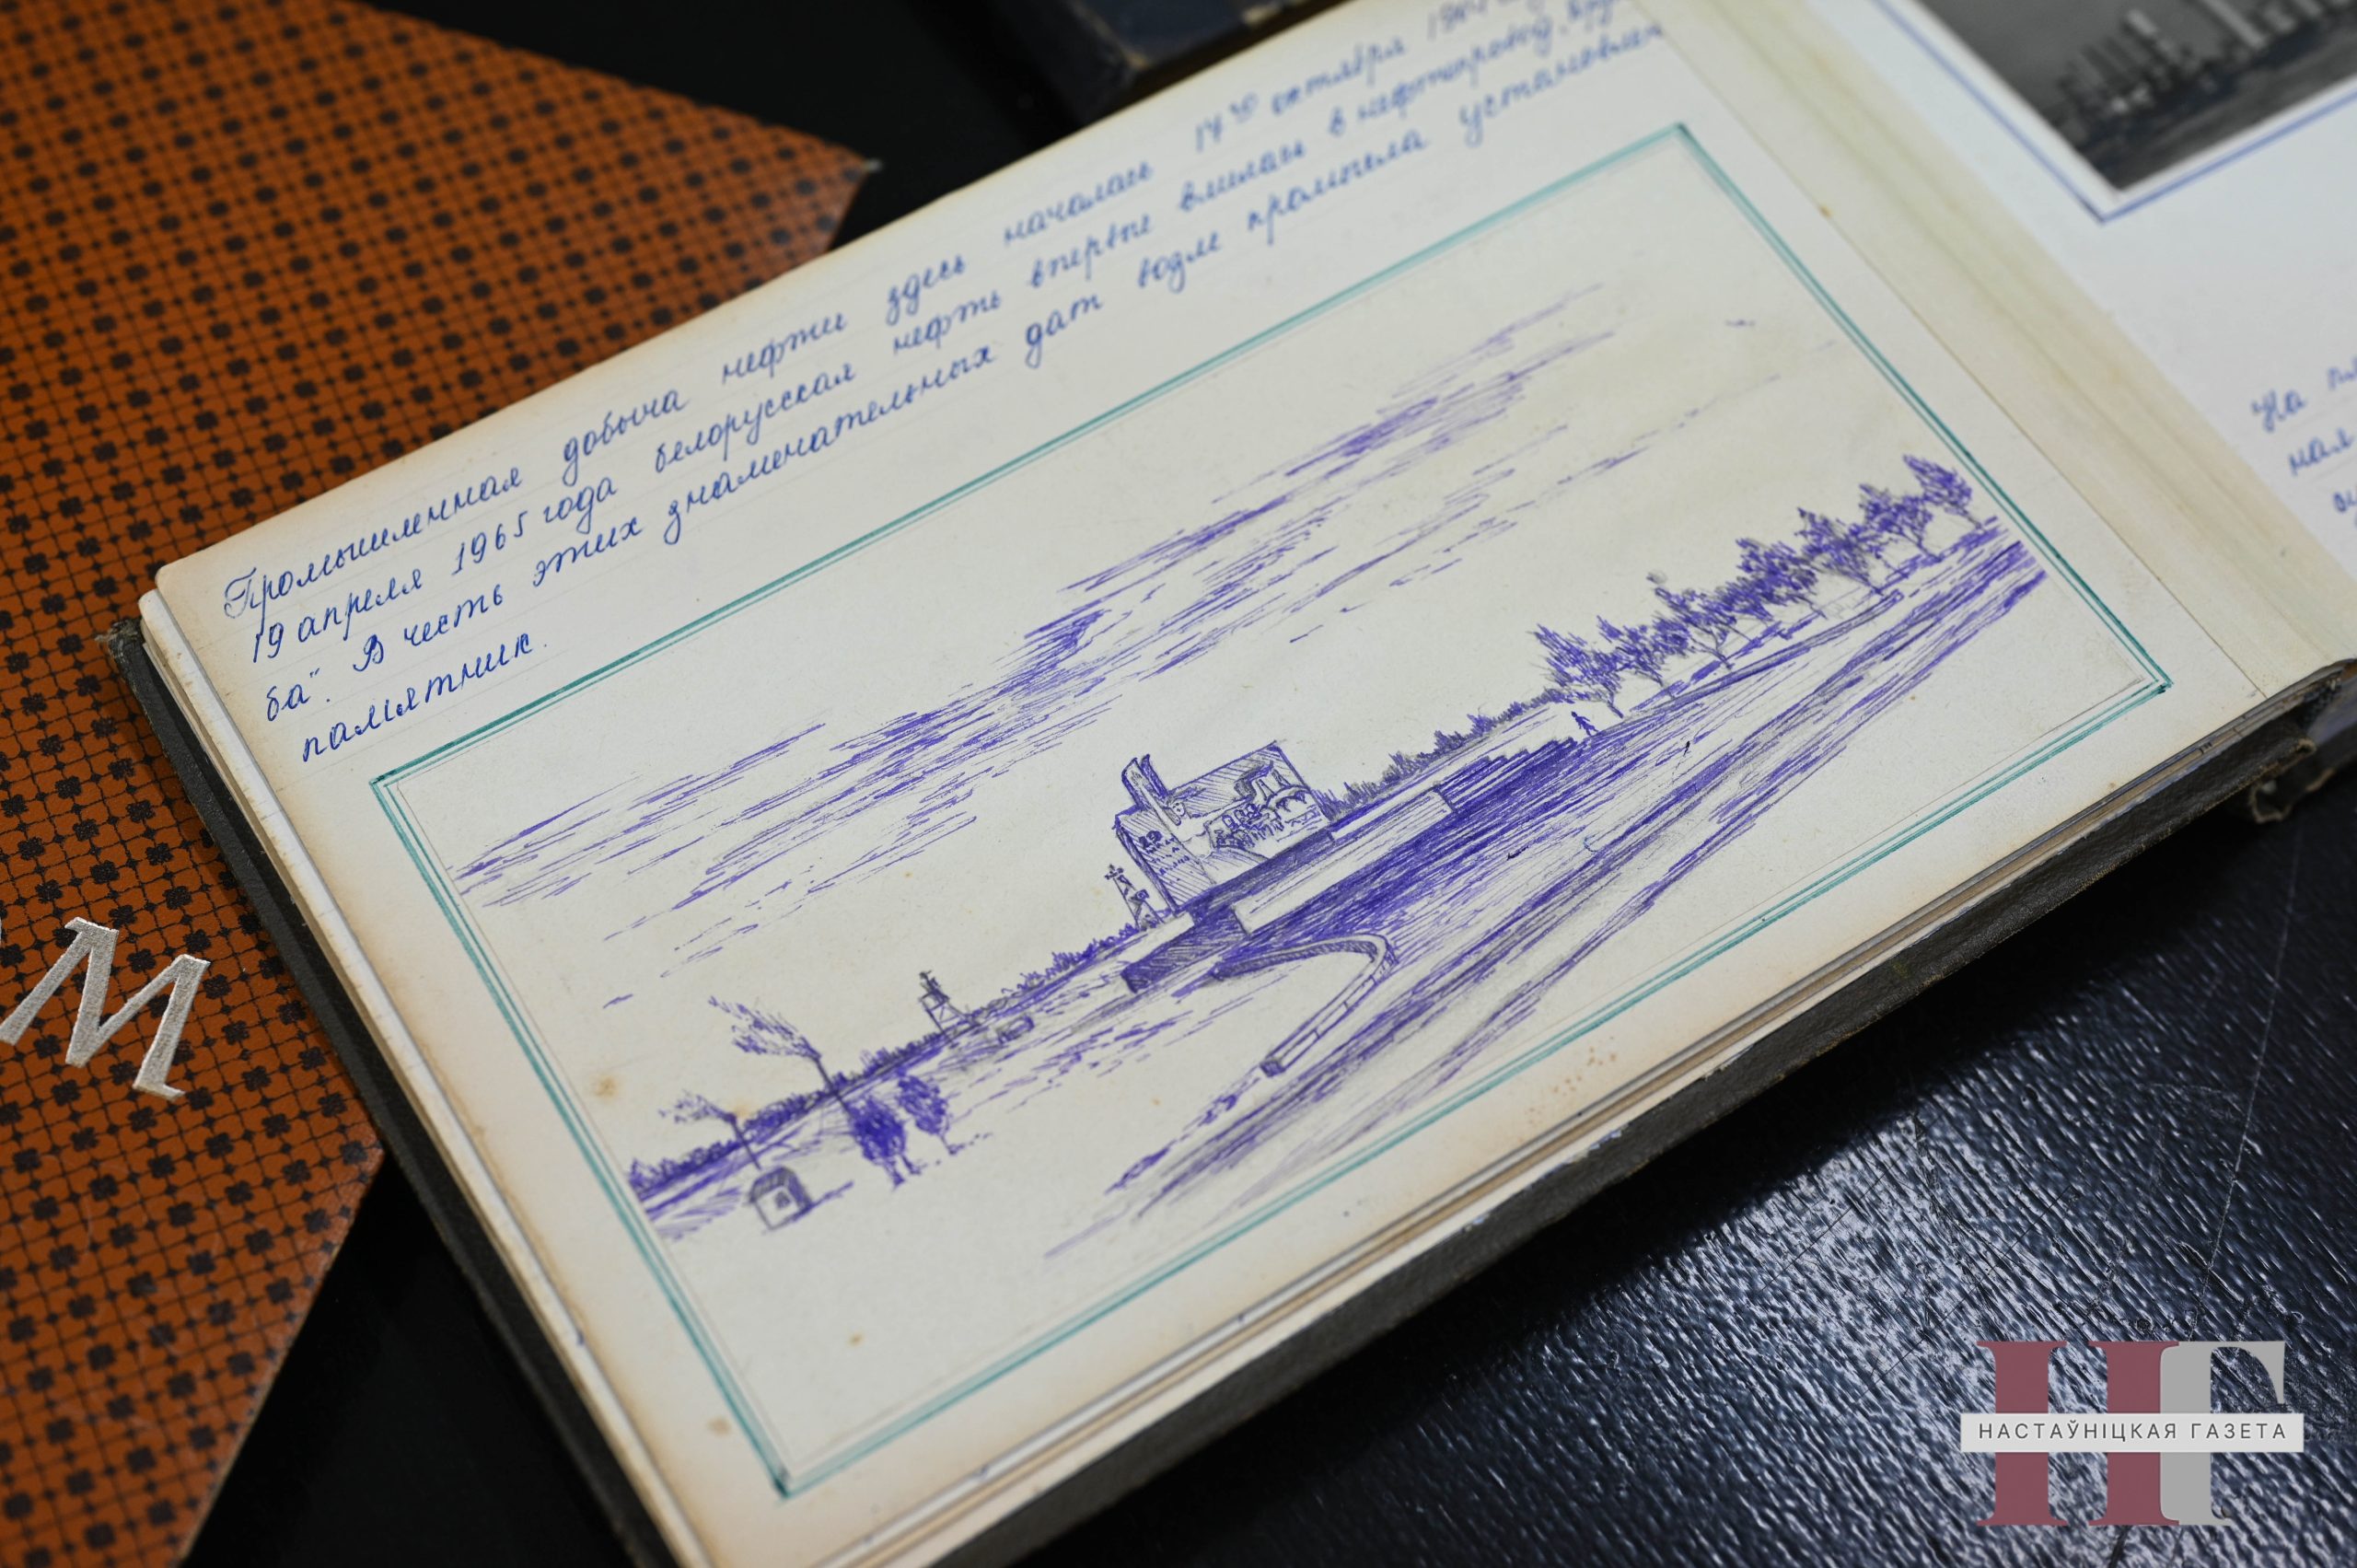 Промышленная добыча нефти здесь началась октября
19 апреля 1965 года белорусская нефть впервые влилась в нефтепровод
ба". В честь этих знаменательных дат возле промысла установлен
памятник.
На
ная
М
НГ
НАСТАЎНІЦКАЯ ГАЗЕТА